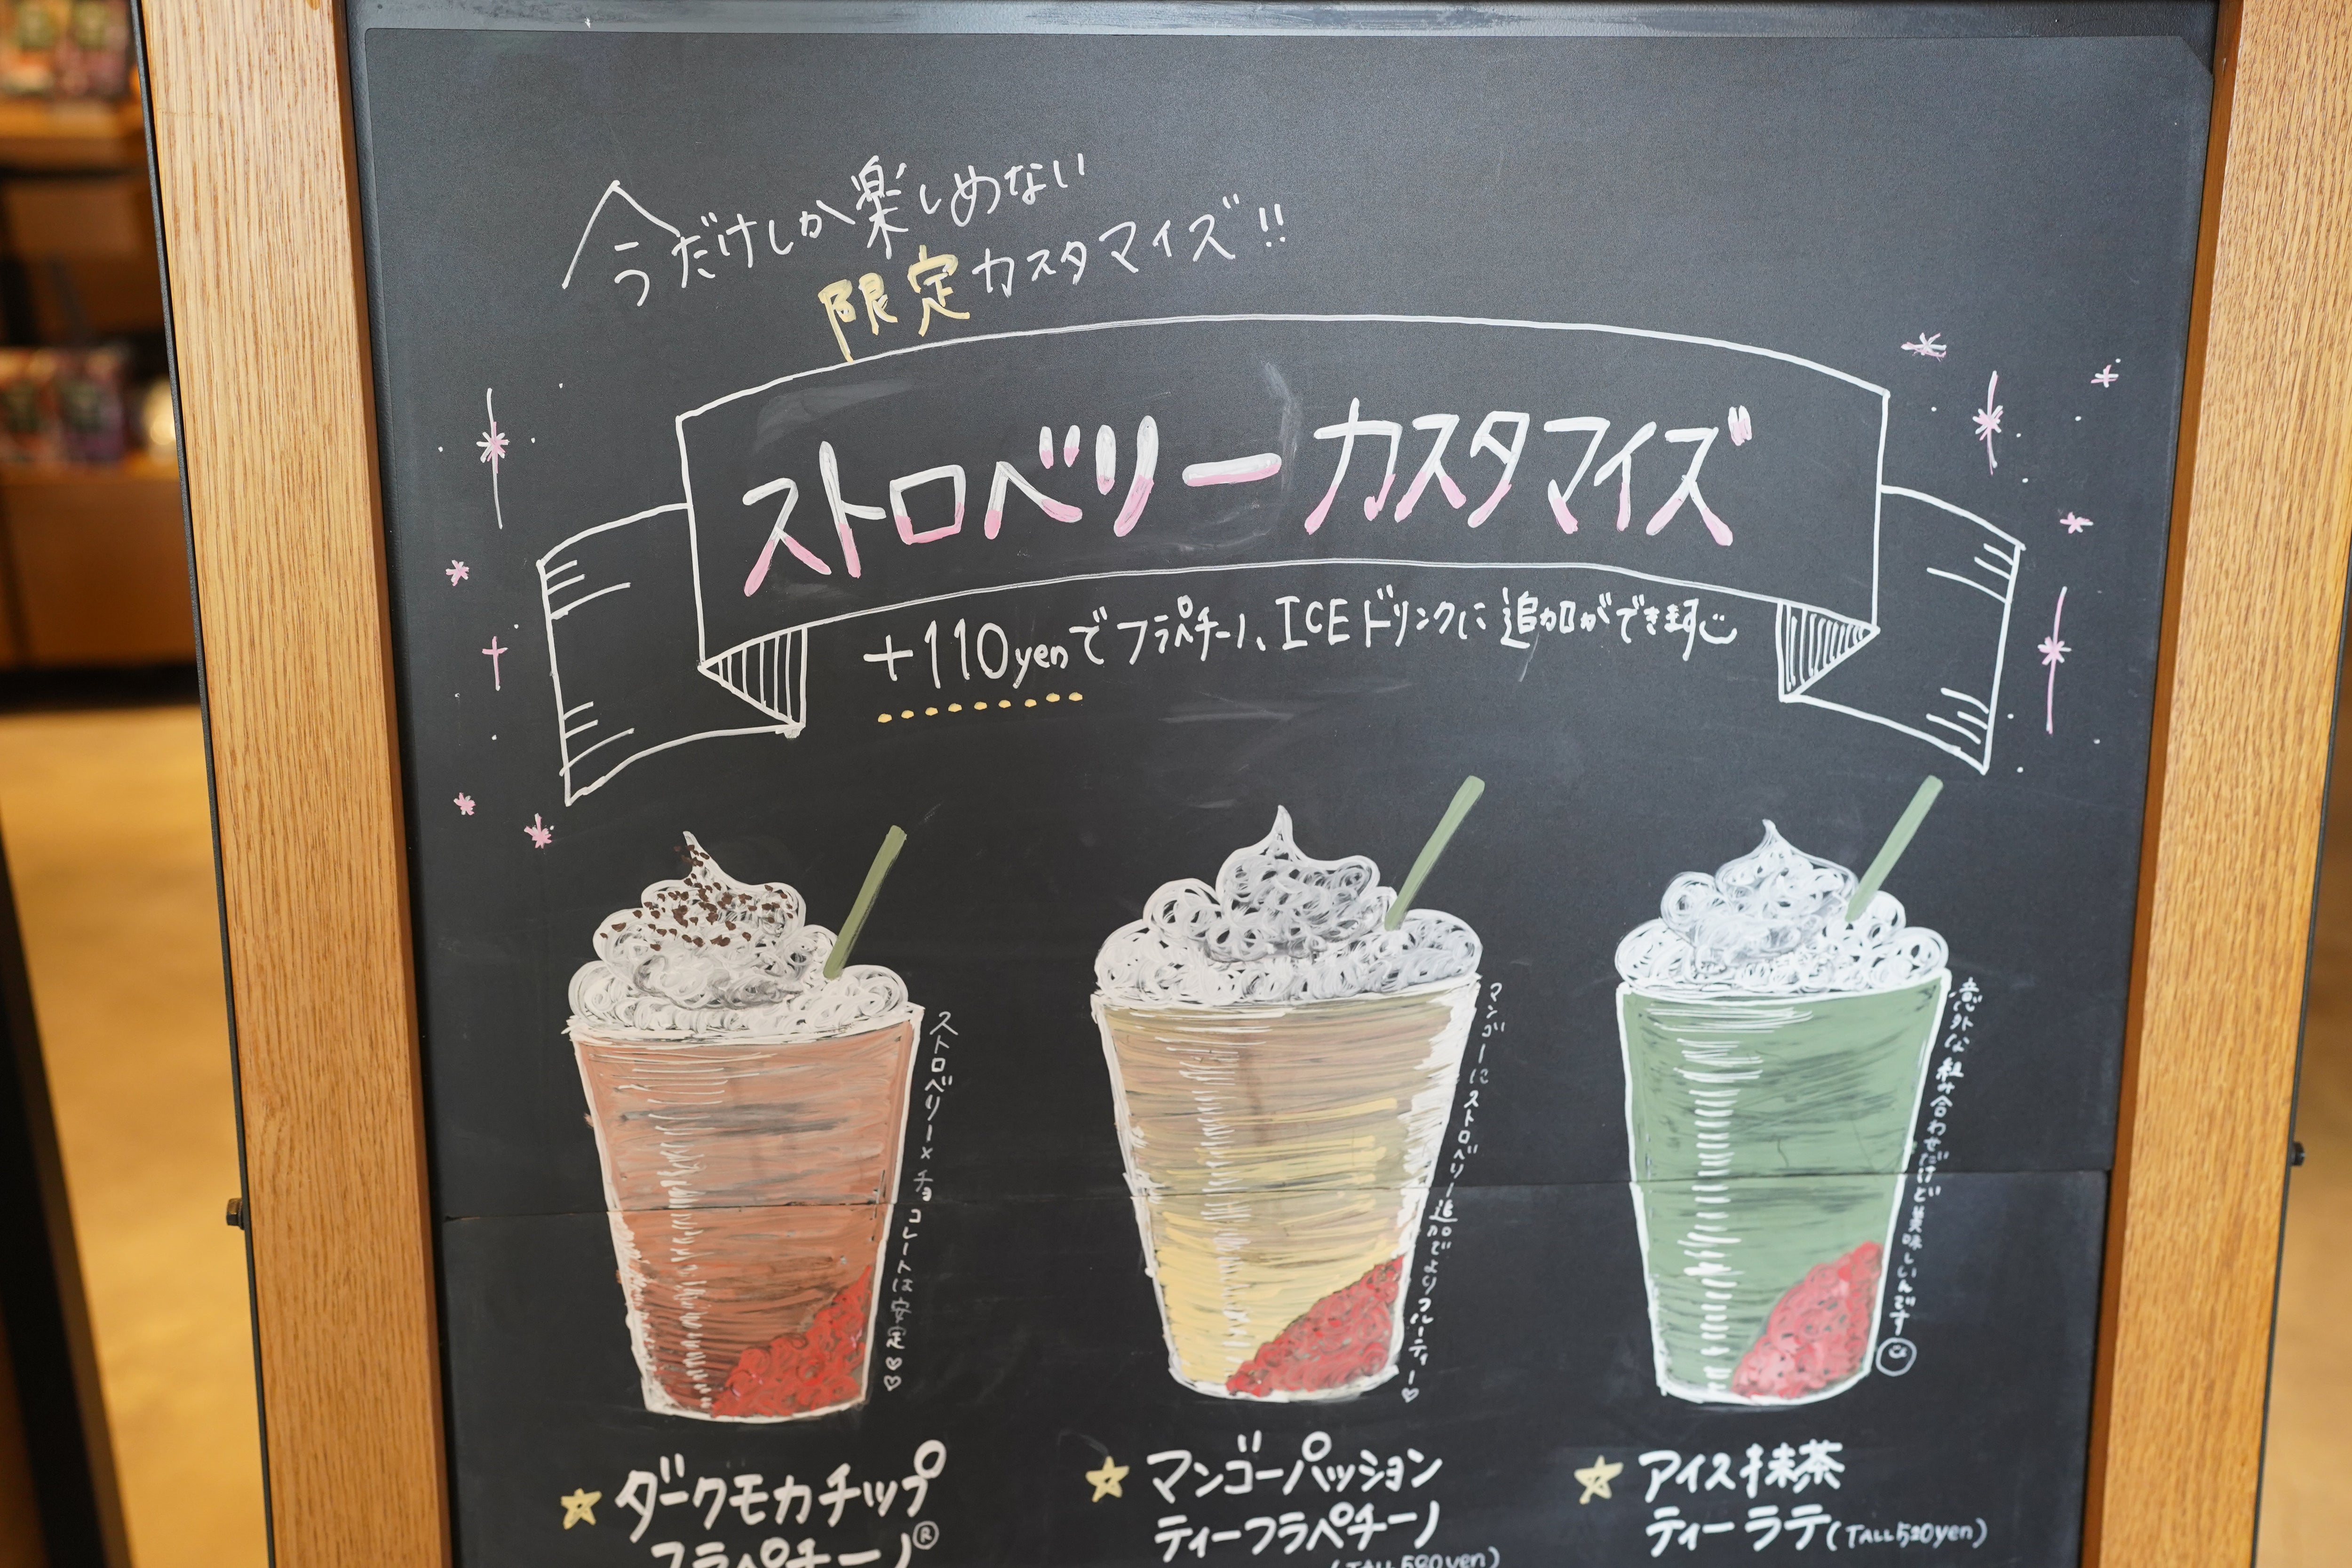 今だけしか楽しめない
限定カスタマイズ!!
ストロベリーカスタマイズ
+110yenでフラペチーノ、ICEドリンクに追加ができます
ストロベリー×チョコレートは安定♡♡
マンゴーにストロベリー追加でよりフルーティー♡
意外な組み合わせだけど美味しいんです
☆ダークモカチップ
フラペチーノ®
☆マンゴーパッション
ティーフラペチーノ
(TALL590yen)
☆アイス抹茶
ティーラテ(TALL520yen)